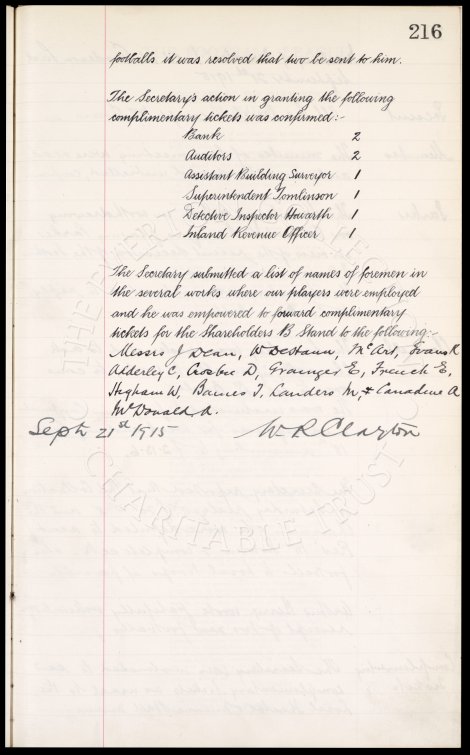 216
footballs it was resolved that two be sent to him.
The Secretary's action in granting the following
complimentary tickets was confirmed:-
Bank 2
Auditors 2
Assistant Building Surveyor 1
Superintendent Tomlinson 1
Detective Inspector Howarth 1
Inland Revenue Officer 1
The Secretary submitted a list of names of foremen in
the several works where our players were employed
and he was empowered to forward complimentary
tickets for the Shareholders B Stand to the following:-
Messrs J Dean, W McArt, Evans R
Alderley C, Crosbie D, Grainger E, French E,
Higham W, Barnes T, Landers M, &
McDonald A.
Sept 21st 1915 W R Clayton
CHARITABLE TRUST